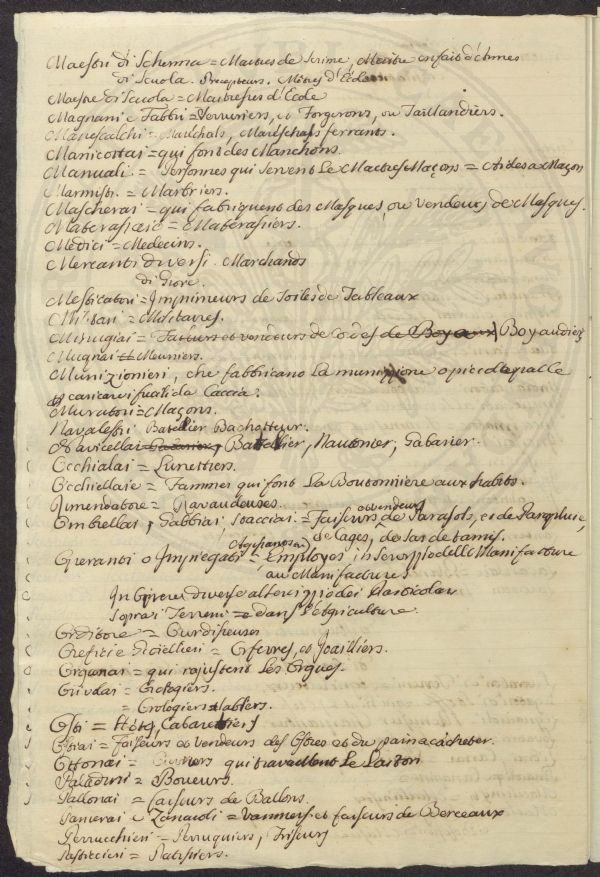 Maestri di Scherma = Maitres de Scrime, Maitre en fait d'Armes
di Scuola. Precepteurs. Mètres d'Ecole
Maestre di Scuola = Maitresses d'Ecole
Magnani e Fabbri = Serruriers, et Forgerons, ou Taillandiers.
Manescalchi = Marechals, Mareschals ferrants.
Manicottai = qui font des Manchons.
Manuali = Personnes qui servent Le Maitres Maçons = Aides a Maçon
Marmisti = Marbriers.
Mascherai = qui fabriquent des Masques, ou vendeurs de Masques.
Materassaie = Materassiers.
Medici = Medecins.
Mercanti diversi. Marchands
di Giore.
Mesticatori = Imprimeurs de Toiles de Tableaux
Militari = Militaires.
Minugiai = Faiseurs et vendeurs de Cordes de Boyaux Boyaudiers
Mugnai = Meuniers.
Munizionieri, che fabbricano La munizione o piccole palle
per caricare i fucili da Caccia.
Muratori = Maçons.
Navalestri Batellier Bachotteur.
Navicellai Gabariers Battellier, Nautonier, Gabarier.
Occhialai = Lunettiers.
Occhiellaie = Fammes qui font La Boutonniere aux habits.
Rimendatore = Ravaudeuses.
Ombrellai, Gabbiai, Stacciai = Faiseurs et vendeurs de Parasols, et de Parapluie,
de Cages, de Sas de tamis.
Operanti o Impiegati = Employes in Servizio delle Manifatture
aux Manifactures
In Opere diverse al servizio dei Particolari
Sopra i Terreni = dans l'Agriculture
Orditore = Ourdisseuses
Orefici e Gioiellieri = Orfevres, et Joailliers.
Organai = qui rajustent Les Orgues.
Oriolai = Orologiers.
= Orologiers
Osti = Hôtes, Cabaretiers
Ostiai = Faiseurs et vendeurs des Ostres et du pain a cacheter.
Ottonai = qui travaillent Le Laiton
Paladini = Boueurs.
Pallonai = Faiseurs de Ballons.
Panierai e Zanaioli = Vanniers et faiseurs de Berceaux
Perrucchieri = Perruquiers, Friseurs
Pasticcieri = Patissiers.